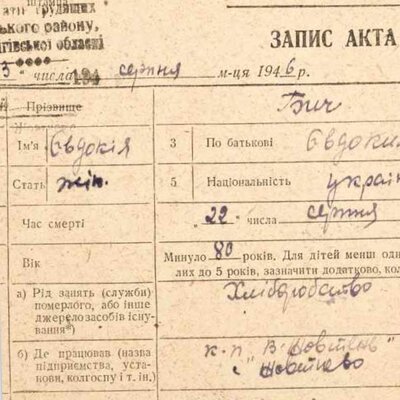 атії трудящих
ького району,
гівської області
ЗАПИС АКТА
3 " числа серпня м-ця 1946 р.
Прізвище Бич
Ім'я Євдокія 3 По батькові
Стать жін. 5 Національність україн
Час смерті „ 22 " числа серпня
Вік Минуло 80 років. Для дітей менш одн
лих до 5 років, зазначити додатково, кол
а) Рід занять (служби)
померлого, або інше
джерело засобів існу-
вання*) Хліборобство
б) Де працював (назва
підприємства, уста-
нови, колгоспу і т. ін.)